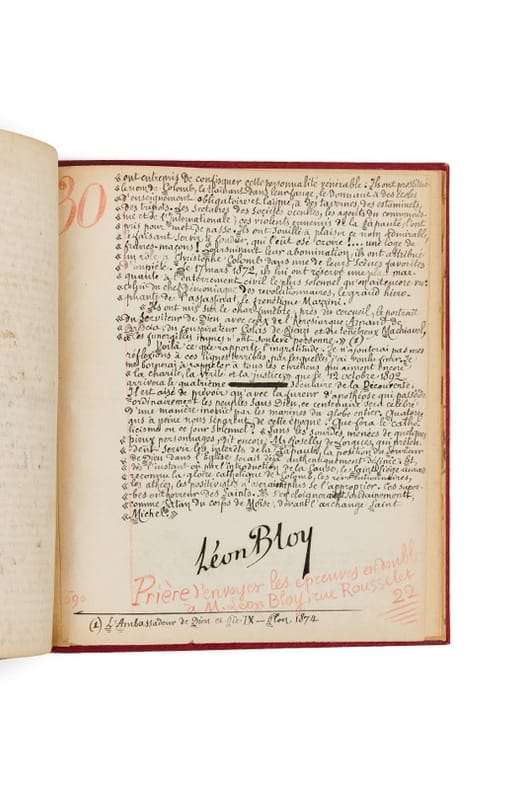 30
« ont entrepris de confisquer cette personnalité vénérable : Ils ont prostitué
« le nom de Colomb, le traînant dans leur fange, le donnant à des écoles
« d'enseignement obligatoire et laïque, à des tavernes, des estaminets,
« des tripots. Les sectaires des sociétés occultes, les agents du communis-
« me et de l'Internationale, ces violents ennemis de la Papauté, l'ont
« pris pour mot de passe. Ils ont souillé à plaisir ce nom admirable
« le faisant servir à fonder, qui l'eût osé croire !... une loge de
« francs-maçons ! Poursuivant leur abomination, ils ont attribué
« un rôle à Christophe Colomb dans une de leurs scènes favorites
« d'impiété. Le 17 mars 1872, ils lui ont réservé une place mar-
« quante à l'enterrement civil le plus solennel qu'aient encore vu
« celui du chef démoniaque des révolutionnaires, le grand hiéro-
« phante de l'assassinat, le frénétique Mazzini.
« Ils ont mis sur le char funèbre, près du cercueil, le portrait
« du Serviteur de Dieu avec ceux de l'hérésiarque Arnaud de
« Brescia, du conspirateur Colas de Rienzi et du ténébreux Machiavel,
« et ces funérailles impies n'ont soulevé personne. » (1)
Voilà ce que rapporte l'ingratitude. Je n'ajouterai pas mes
réflexions à ces lignes terribles par lesquelles j'ai voulu finir. Je
me bornerai à rappeler à tous les chrétiens qui aiment encore
la charité, la vérité et la justice, que le 12 octobre 1892
arrivera le quatrième séculaire de la Découverte.
Il est aisé de prévoir qu'avec la fureur d'apothéose qui possède
ordinairement les peuples sans Dieu, ce centenaire sera célébré
d'une manière inouïe par les marines du globe entier. Quatorze
ans à peine nous séparent de cette époque. Que fera le catho-
licisme en ce jour solennel ? « Sans les sourdes menées de quelques
« pieux personnages, dit encore M. Roselly de Lorgues, qui préten-
« dent servir les intérêts de la Papauté, la position du Serviteur
« de Dieu dans l'Eglise serait déjà authentiquement définie. Et
« dès l'instant où par l'introduction de la Cause, le Saint-Siège aurait
« reconnu la gloire catholique de Colomb, les révolutionnaires,
« les athées, les positivistes n'oseraient plus se l'approprier. Ces super-
« bes ont horreur des Saints. Ils s'en éloigneraient soudainement
« comme Satan du corps de Moïse, devant l'archange Saint
« Michel. »
Léon Bloy
Prière d'envoyer les épreuves en double
à M. Léon Bloy, rue Rousselet
22
(1) L'Ambassadeur de Dieu et Pie IX — Plon, 1874.